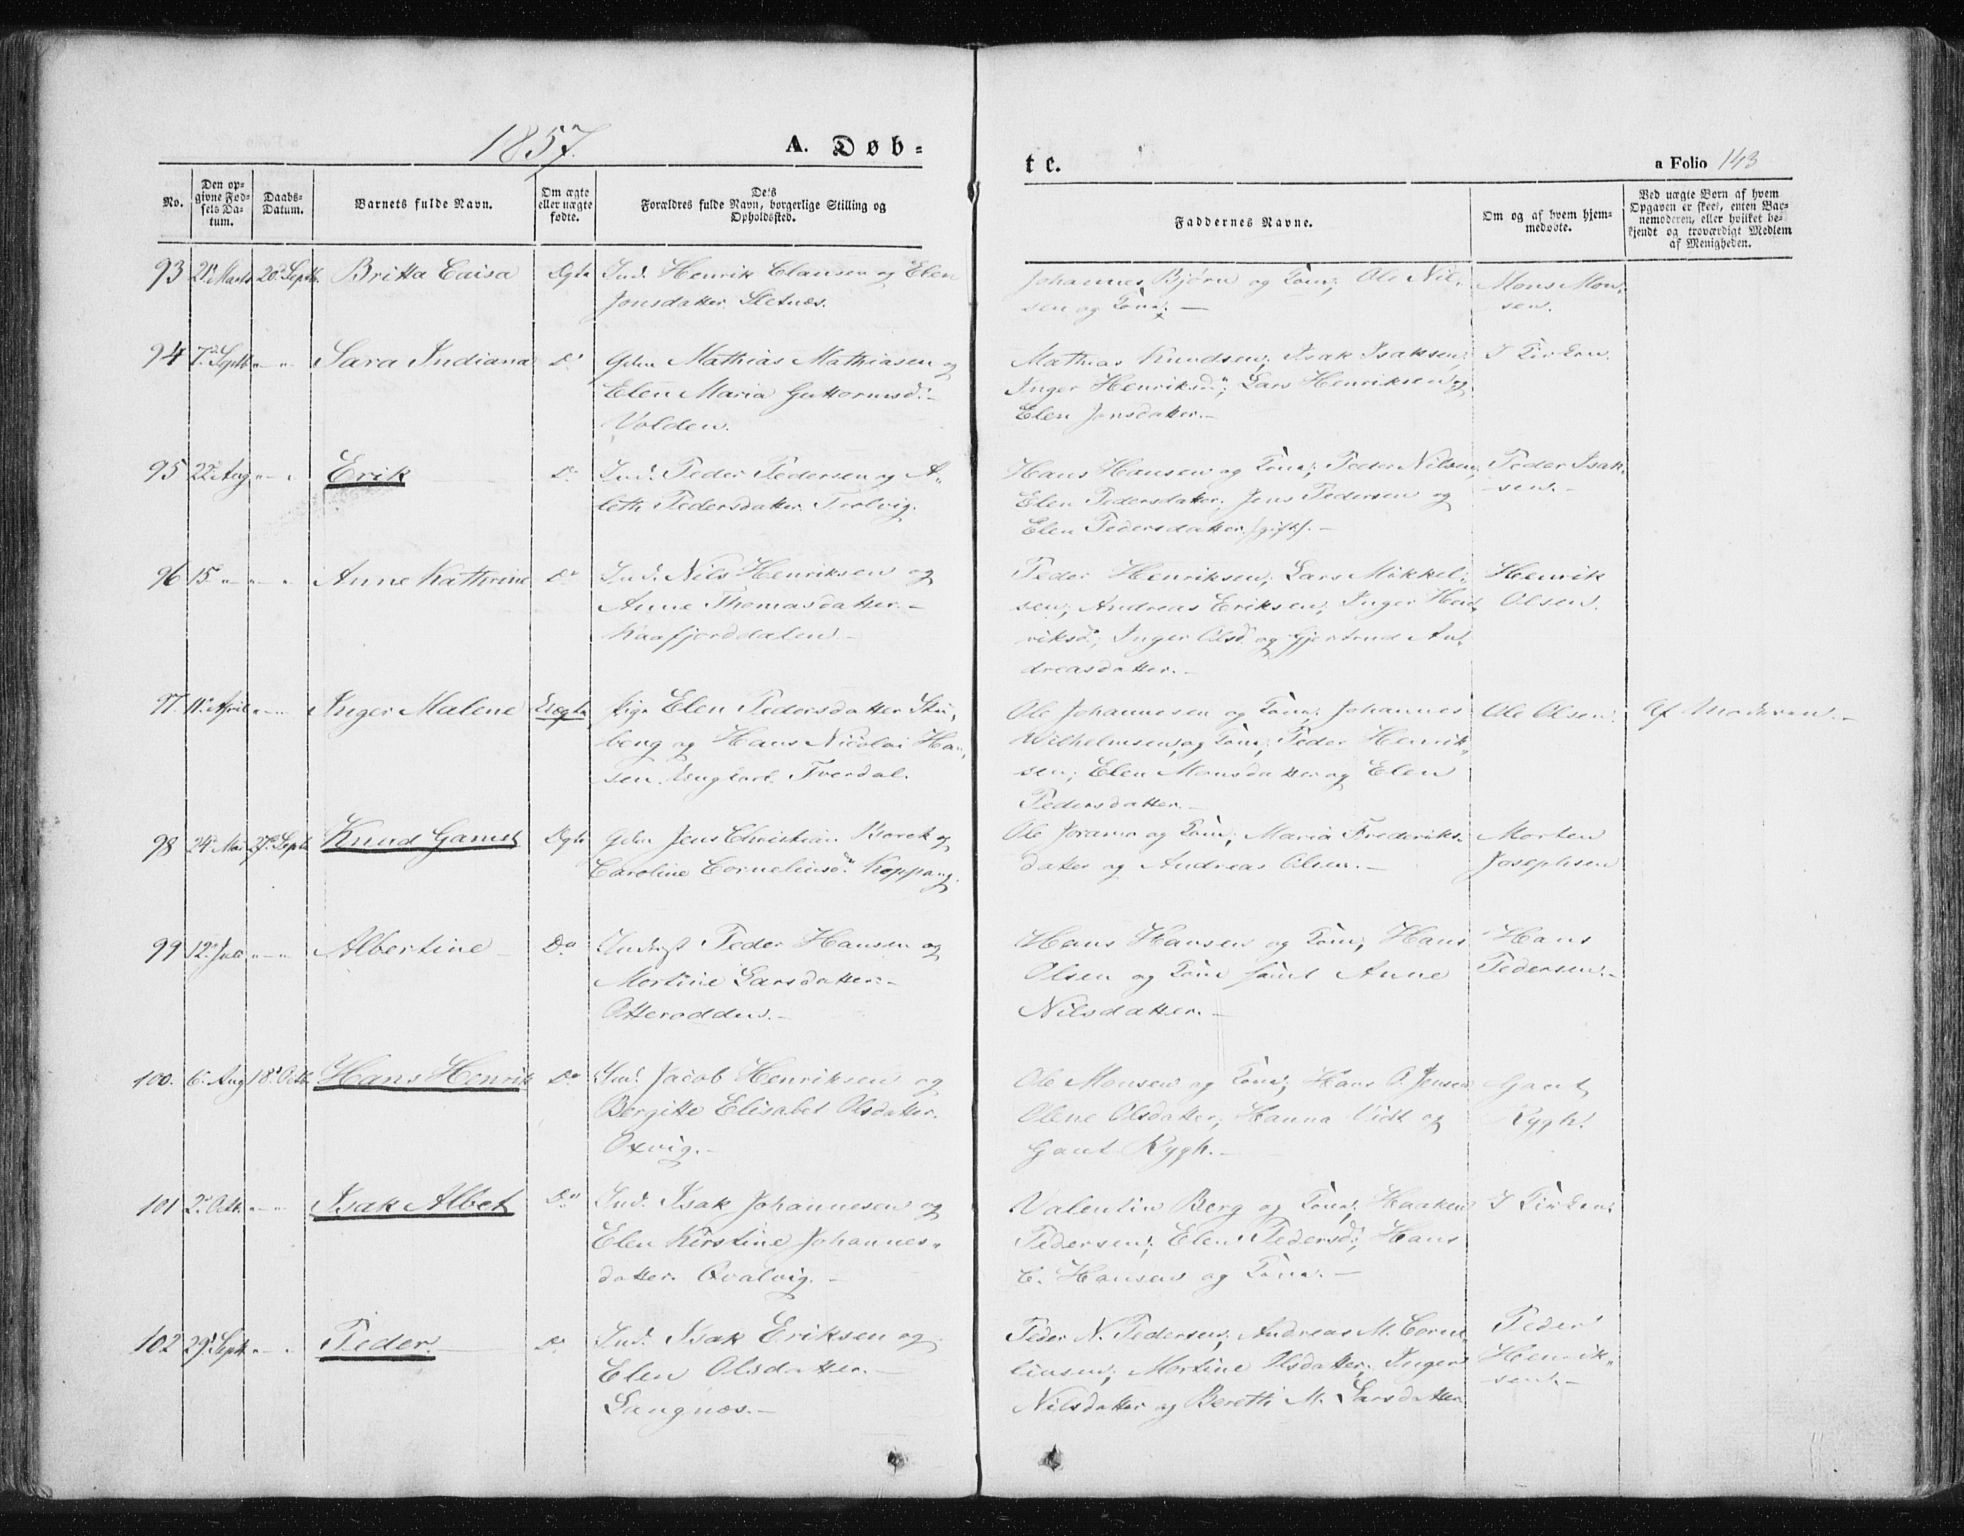 1857.
A. Døb-
te.
a Folio 143
No.
Den op-
givne Fød-
sels Da-
tum.
Daabs-
Datum.
Barnets fulde Navn.
Om ægte
eller uægte
fødte.
Dets
Forældres fulde Navn, borgerlige Stilling og
Opholdssted.
Faddernes Navne.
Om og af hvem hjem-
medøbte.
Ved uægte Born af hvem
Opgaven er skeet, enten Bar-
nemoderen, eller hvilket be-
kjendt og troværdigt Medlem
af Menigheden.
93 21 Marts 20 Septb. Britta Caisa Ægte Ind. Henrik Clausen og Elen
Jonsdatter Sletnæs.
Johannes Bjørn og Kone, Ole Nil-
sen og Kone. —
Mons Mon-
sen.
94 7 Septb. " — " Sara Indiana Do Gdm Mathias Mathiasen og
Elen Maria Guttormsd. —
Volden.
Mathias Knudsen, Isak Isaksen,
Inger Henriksd., Lars Henriksen og
Elen Jonsdatter. —
I Kirken.
95 22 Aug " — " Erik Do Ind. Peder Pedersen og A-
leth Pedersdatter Trolvig.
Hans Hansen og Kone, Peder Nilsen,
Elen Pedersdatter, Jens Pedersen og
Elen Pedersdatter /gift/. —
Peder Isak-
sen. —
96 15 " — " — " Anne Kathrine Do Ind. Nils Henriksen og
Anne Thomasdatter. —
Kaafjorddalen —
Peder Henriksen, Lars Mikkel-
sen, Andreas Eriksen, Inger Hen-
riksd., Inger Olsd. og Gjertrud An-
dreasdatter. —
Henrik
Olsen.
97. 11 April " — " Inger Malene Uægte Pige Elen Pedersdatter Ski-
berg og Hans Nicolai Han-
sen Ungkarl Tverdal.
Ole Johannesen og Kone, Johannes
Wilhelmsen og Kone, Peder Henrik-
sen, Elen Monsdatter og Elen
Pedersdatter. —
Ole Olsen.
Af Moderen. —
98 24 Mai 27 Septb Knud Gamst Ægte Gdm Jens Christian Borch og
Caroline Corneliusd. Koppang.
Ole Joramo og Kone, Maria Frederiks-
datter og Andreas Olsen. —
Morten
Josephsen
99 12 Juli " — " Albertine — Do Inderst Peder Hansen og
Mortine Larsdatter. —
Otteroddens. —
Hans Hansen og Kone, Hans
Olsen og Kone samt Anne
Nilsdatter. —
Hans
Pedersen. —
100. 6 Aug 18 Octb. Hans Henrik Do Ind. Jacob Henriksen og
Bergitte Elisabet Olsdatter.
Oxvig. —
Ole Monsen og Kone, Hans P. Jensen
Olene Olsdatter, Hanna Vidt og
Gaut Rygh. —
Gaut
Rygh.
101 2 Octb. " — " Isak Albet Do Ind. Isak Johannesen og
Elen Kirstine Johannes-
datter. Qvalvig. —
Valentin Berg og Kone, Haaken
Pedersen, Elen Pedersd., Hans
C. Hansen og Kone. —
I Kirken.
102 29 Septb. " — " Peder. Do Ind. Isak Eriksen og
Elen Olsdatter. —
Langnæs. —
Peder N. Pedersen, Andreas M. Corne-
liusen, Mortine Olsdatter, Inger
Nilsdatter og Bereth M. Larsdatter
Peder
Henrik-
sen. —